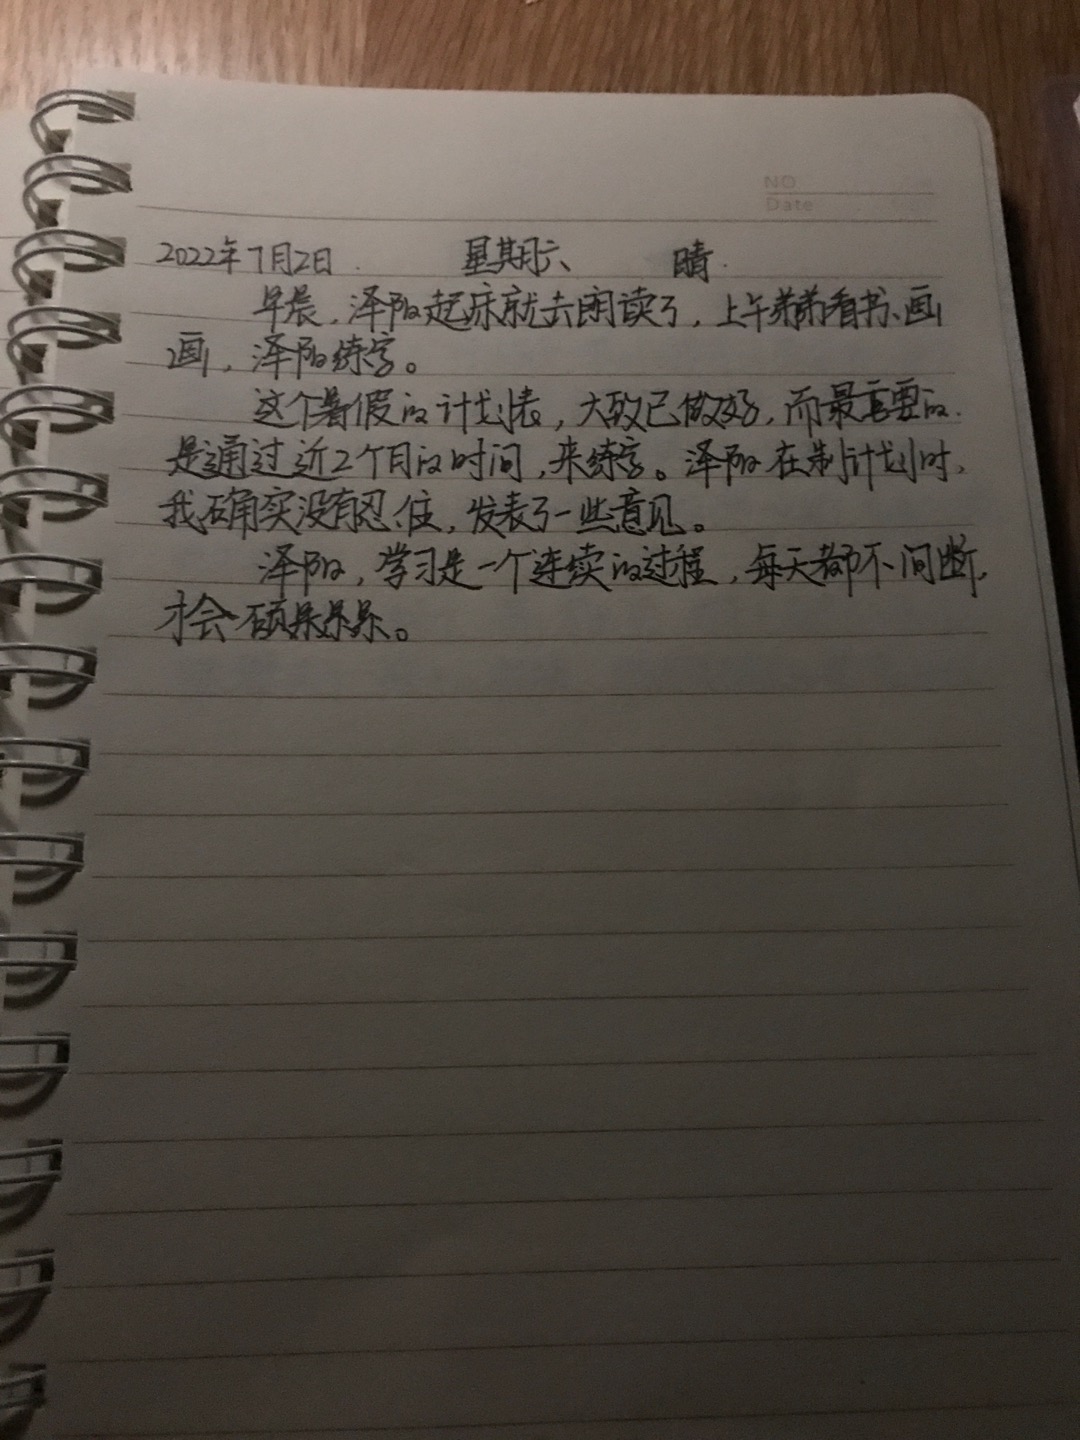 NO
Date
2022年7月2日. 星期六 晴.
早晨,泽阳起床就去阅读了,上午弟弟看书、画
画,泽阳练字。
这个暑假的计划表,大致已做好,而最重要的.
是通过近2个月的时间,来练字。泽阳在制计划时,
我确实没有忍住,发表了一些意见。
泽阳,学习是一个连续的过程,每天都不间断,
才会硕果累累。